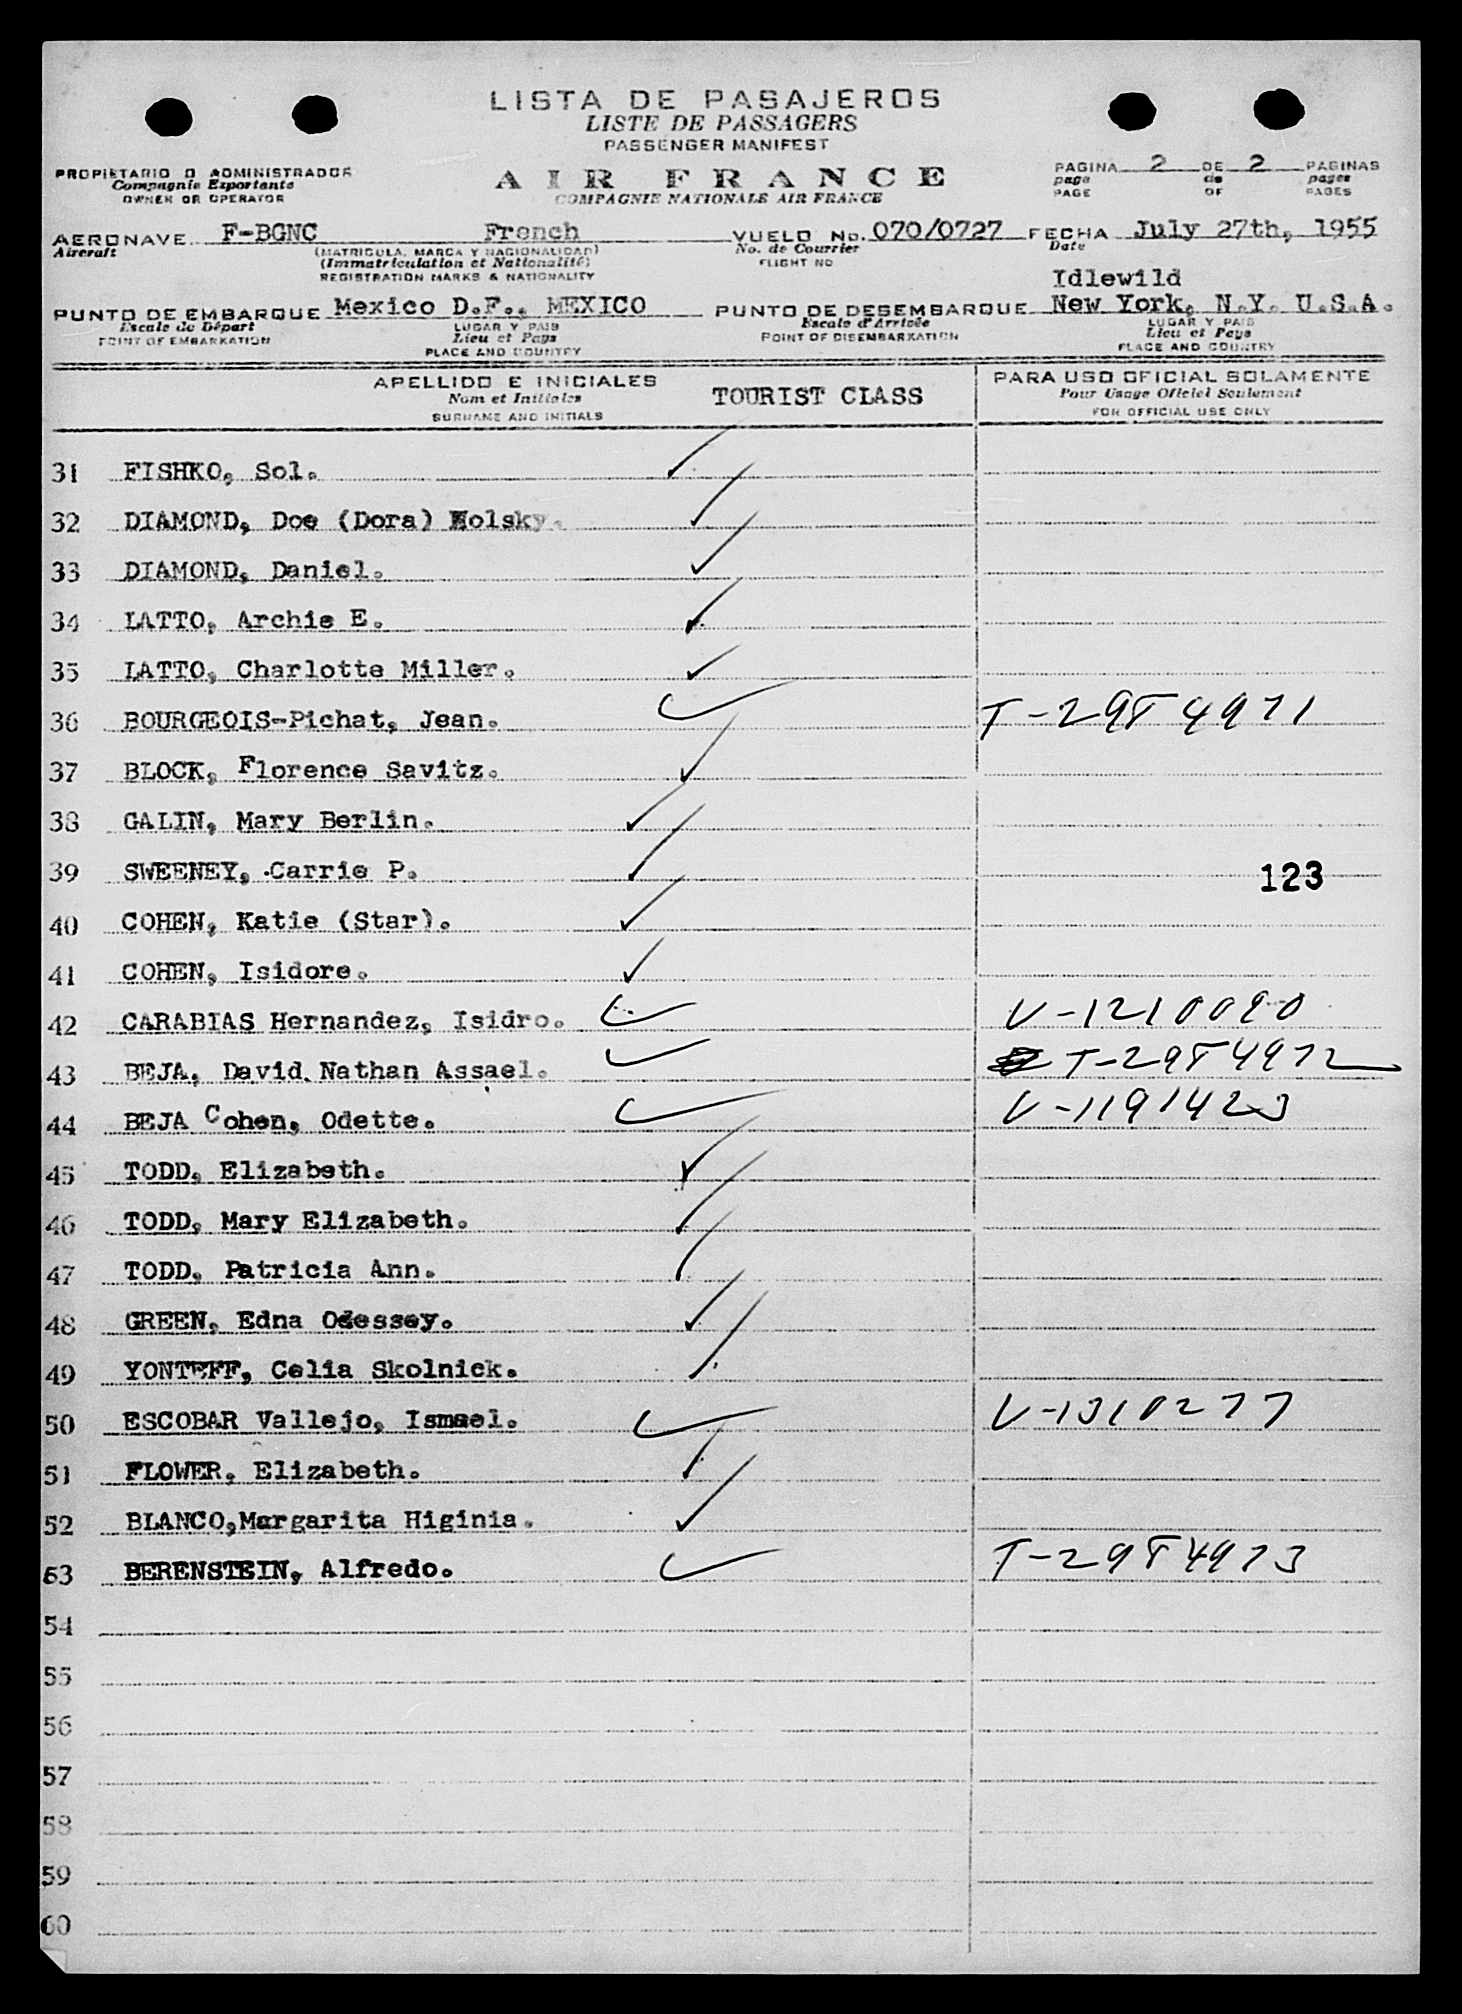 LISTA DE PASAJEROS
LISTE DE PASSAGERS
PASSENGER MANIFEST
PROPIETARIO O ADMINISTRADOR
Compagnie Exportante
OWNER OR OPERATOR
AIR FRANCE
COMPAGNIE NATIONALE AIR FRANCE
PAGINA 2 DE 2 PAGINAS
page de pages
PAGE OF PAGES
AERONAVE F-BGNC French VUELO No. 070/0727 FECHA July 27th, 1955
Aircraft (MATRICULA, MARCA Y NACIONALIDAD) No. de Courrier Date
(Immatriculation et Nationalité) FLIGHT NO
REGISTRATION MARKS & NATIONALITY
Idlewild
PUNTO DE EMBARQUE Mexico D.F., MEXICO PUNTO DE DESEMBARQUE New York, N.Y. U.S.A.
Escale de Départ LUGAR Y PAIS Escale d'Arrivée LUGAR Y PAIS
POINT OF EMBARKATION Lieu et Pays POINT OF DISEMBARKATION Lieu et Pays
PLACE AND COUNTRY PLACE AND COUNTRY
APELLIDO E INICIALES TOURIST CLASS PARA USO OFICIAL SOLAMENTE
Nom et Initiales Pour Usage Oficiel Seulement
SURNAME AND INITIALS FOR OFFICIAL USE ONLY
31 FISHKO, Sol.
32 DIAMOND, Doe (Dora) Wolsky.
33 DIAMOND, Daniel.
34 LATTO, Archie E.
35 LATTO, Charlotte Miller.
36 BOURGEOIS-Pichat, Jean. T-2984971
37 BLOCK, Florence Savitz.
38 GALIN, Mary Berlin.
39 SWEENEY, Carrie P. 123
40 COHEN, Katie (Star).
41 COHEN, Isidore.
42 CARABIAS Hernandez, Isidro. V-1210090
43 BEJA, David Nathan Assael. T-2984972
44 BEJA Cohen, Odette. V-1191423
45 TODD, Elizabeth.
46 TODD, Mary Elizabeth.
47 TODD, Patricia Ann.
48 GREEN, Edna Odessey.
49 YONTEFF, Celia Skolnick.
50 ESCOBAR Vallejo, Ismael. V-1310277
51 FLOWER, Elizabeth.
52 BLANCO,Margarita Higinia.
53 BERENSTEIN, Alfredo. T-2984973
54
55
56
57
58
59
60